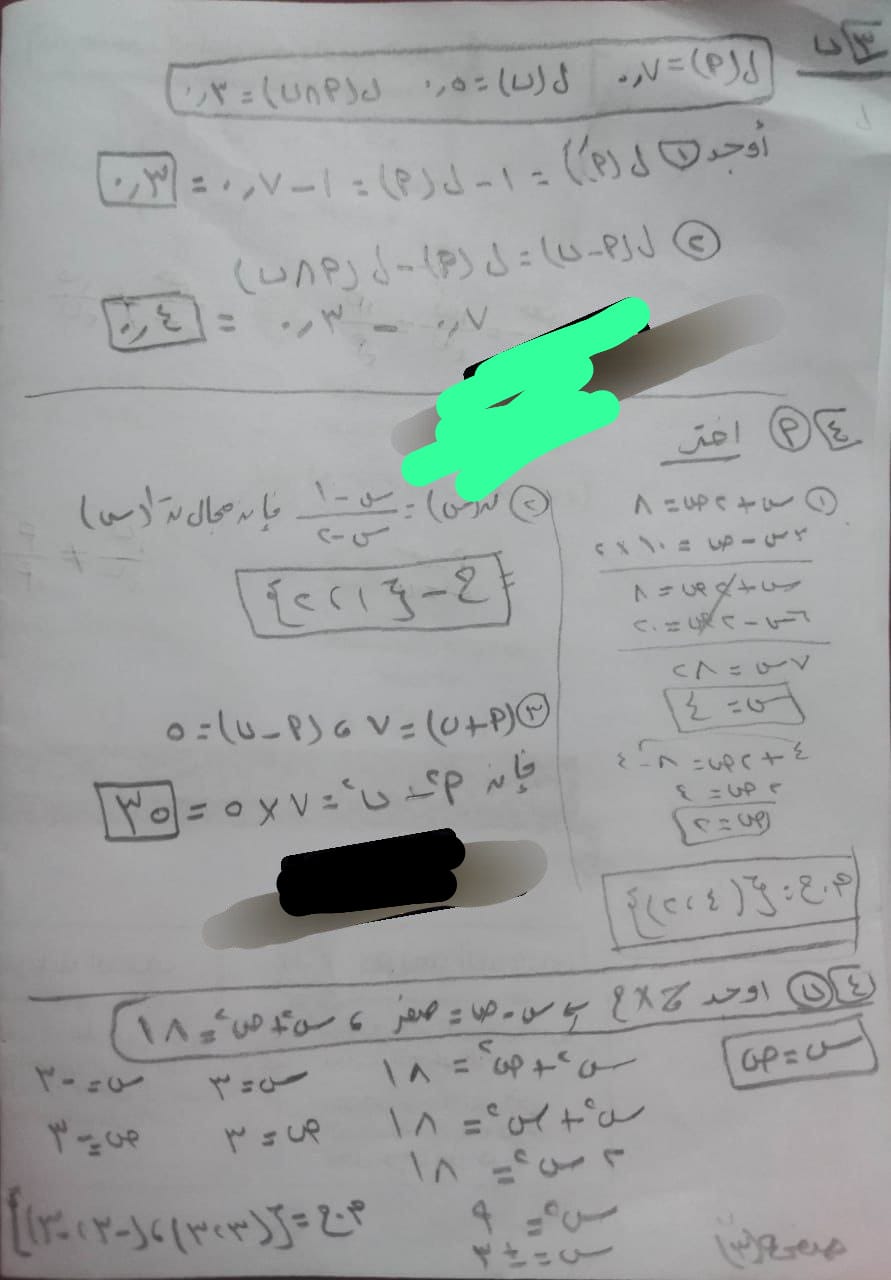 ٣ ب
ل(٩) = ٠,٧ ل(ب) = ٠,٥ ل(٩∩ب) = ٠,٣
أوجد ١ ل(٩َ) = ١ - ل(٩) = ١ - ٠,٧ = ٠,٣
٢ ل(٩-ب) = ل(٩) - ل(٩∩ب)
٠,٧ - ٠,٣ = ٠,٤
٤ ٩ اختر
١ س + ٢ص = ٨
٣س - ص = ١٠ × ٢
س + ٢ص = ٨
٦س - ٢ص = ٢٠
٧س = ٢٨
س = ٤
٤ + ٢ص = ٨ - ٤
٢ص = ٤
ص = ٢
م.ح = {(٤،٢)}
٢ ن(س) = س-١ / س-٢ فإن مجال ن⁻¹(س)
= ح - {١،٢}
٣ (٩+ب) = ٧ ، (٩-ب) = ٥
فإن ٩² - ب² = ٧ × ٥ = ٣٥
٤ ب اوجد ح×ح س - ص = صفر و س² + ص² = ١٨
س = ص
س² + ص² = ١٨
س² + س² = ١٨
٢س² = ١٨
س² = ٩
س = ±٣
س = ٣ س = -٣
ص = ٣ ص = -٣
م.ح = {(٣،٣) ، (-٣،-٣)}
صفحة (٣)